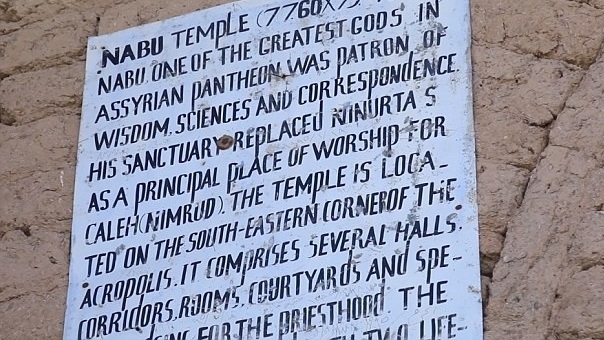 NABU TEMPLE
NABU, ONE OF THE GREATEST GODS IN
ASSYRIAN PANTHEON WAS PATRON OF
WISDOM, SCIENCES AND CORRESPONDENCE
HIS SANCTUARY REPLACED NINURTA'S
AS A PRINCIPAL PLACE OF WORSHIP FOR
CALEH(NIMRUD). THE TEMPLE IS LOCA-
TED ON THE SOUTH-EASTERN CORNER OF THE
ACROPOLIS. IT COMPRISES SEVERAL HALLS,
CORRIDORS, ROOMS, COURTYARDS AND SPE-
FOR THE PRIESTHOOD. THE
TWO LIFE-